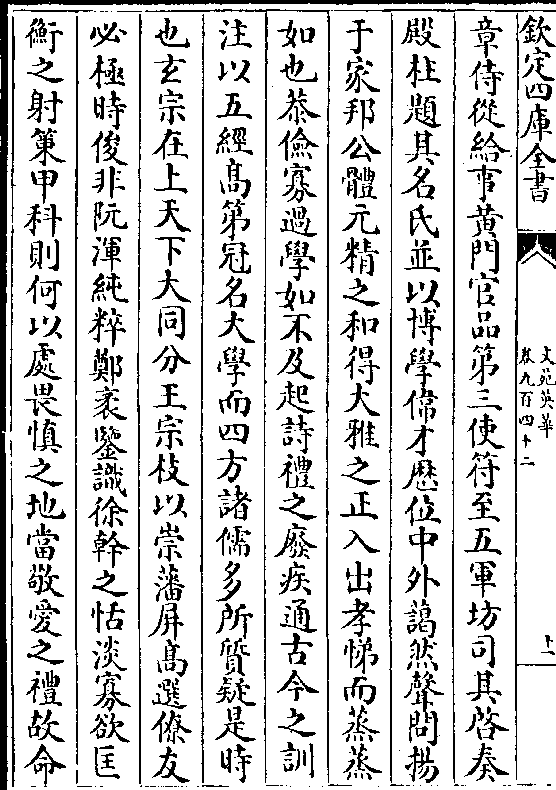 欽定四庫全書
文苑英華
卷九百四十二
十一
章侍從給事黄門官品第三使符至五軍坊司其啓奏
殿柱題其名氏並以博學偉才歴位中外藹然聲問揚
于家邦公體元精之和得大雅之正入出孝悌而蒸蒸
如也恭儉寡過學如不及起詩禮之廢疾通古今之訓
注以五經髙第冠名大學而四方諸儒多所質疑是時
也玄宗在上天下大同分王宗枝以崇藩屏髙選僚友
必極時俊非阮渾純粹鄭袤鑒識徐幹之恬淡寡欲匡
衡之射策甲科則何以處畏慎之地當敬愛之禮故命